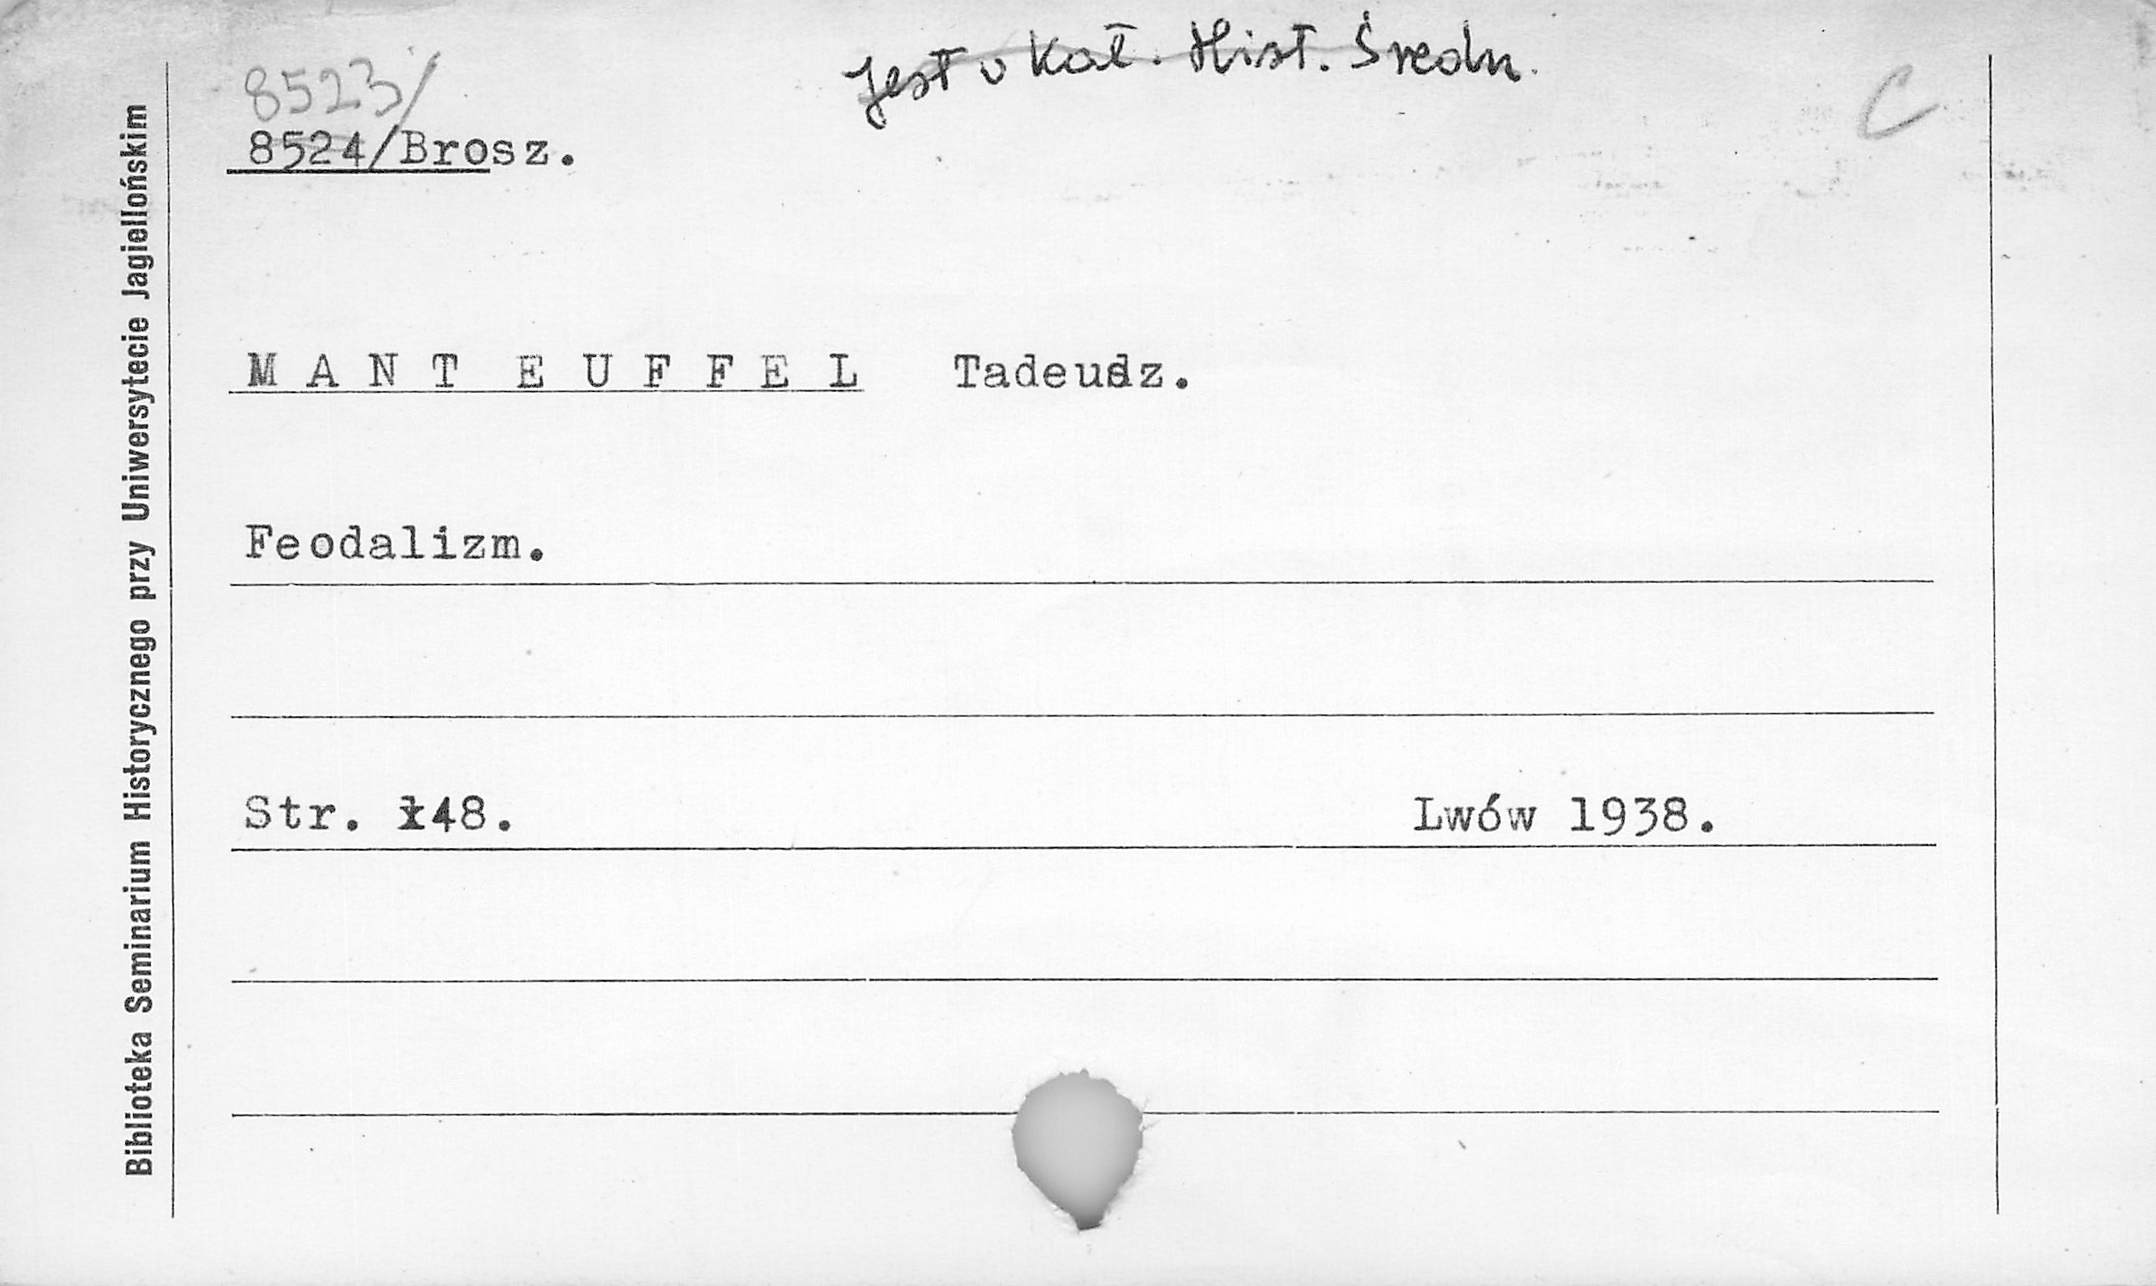 Jest v Kat. Hist. Średn.
C
8523/
8524/Brosz.
M A N T E U F F E L Tadeusz.
Feodalizm.
Str. 148.
Lwów 1938.
Biblioteka Seminarium Historycznego przy Uniwersytecie Jagiellońskim